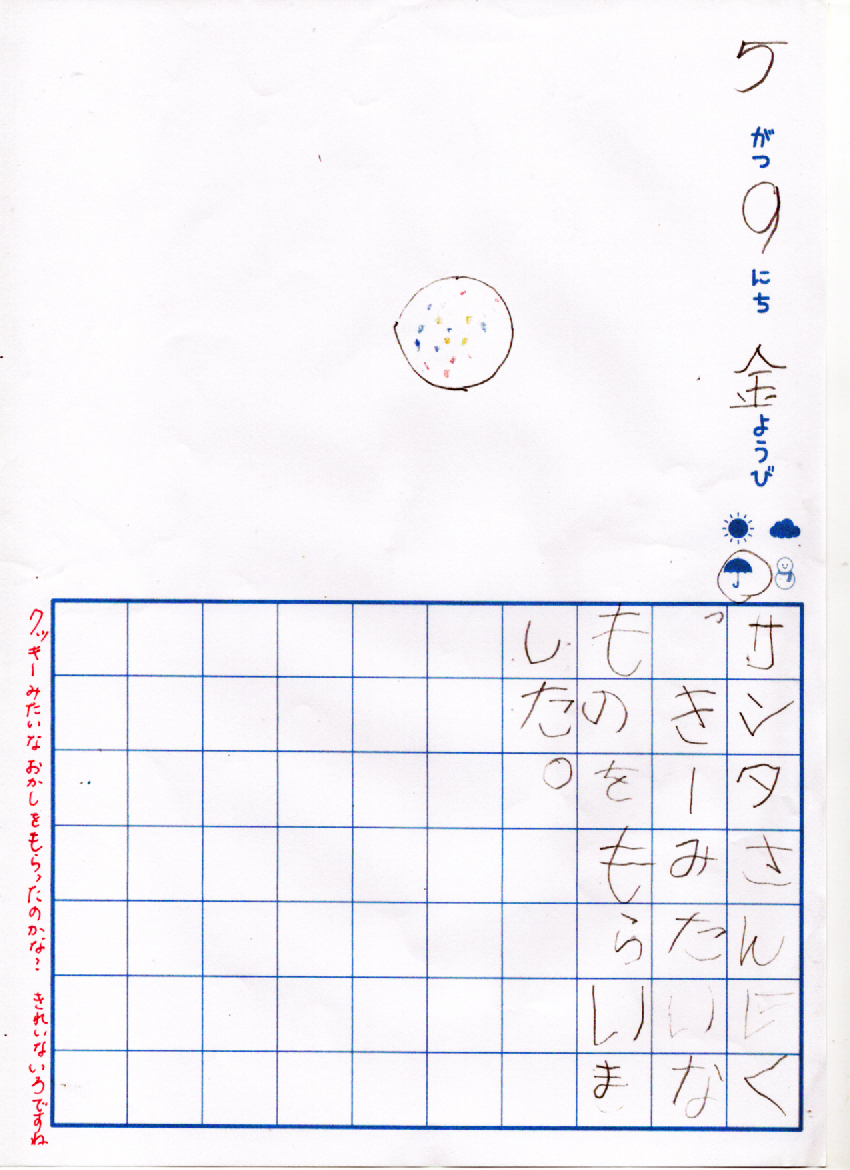 5がつ9にち金ようび
サンタさんにく
っきーみたいな
ものをもらいま
した。
クッキーみたいなおかしをもらったのかな? きれいないろですね